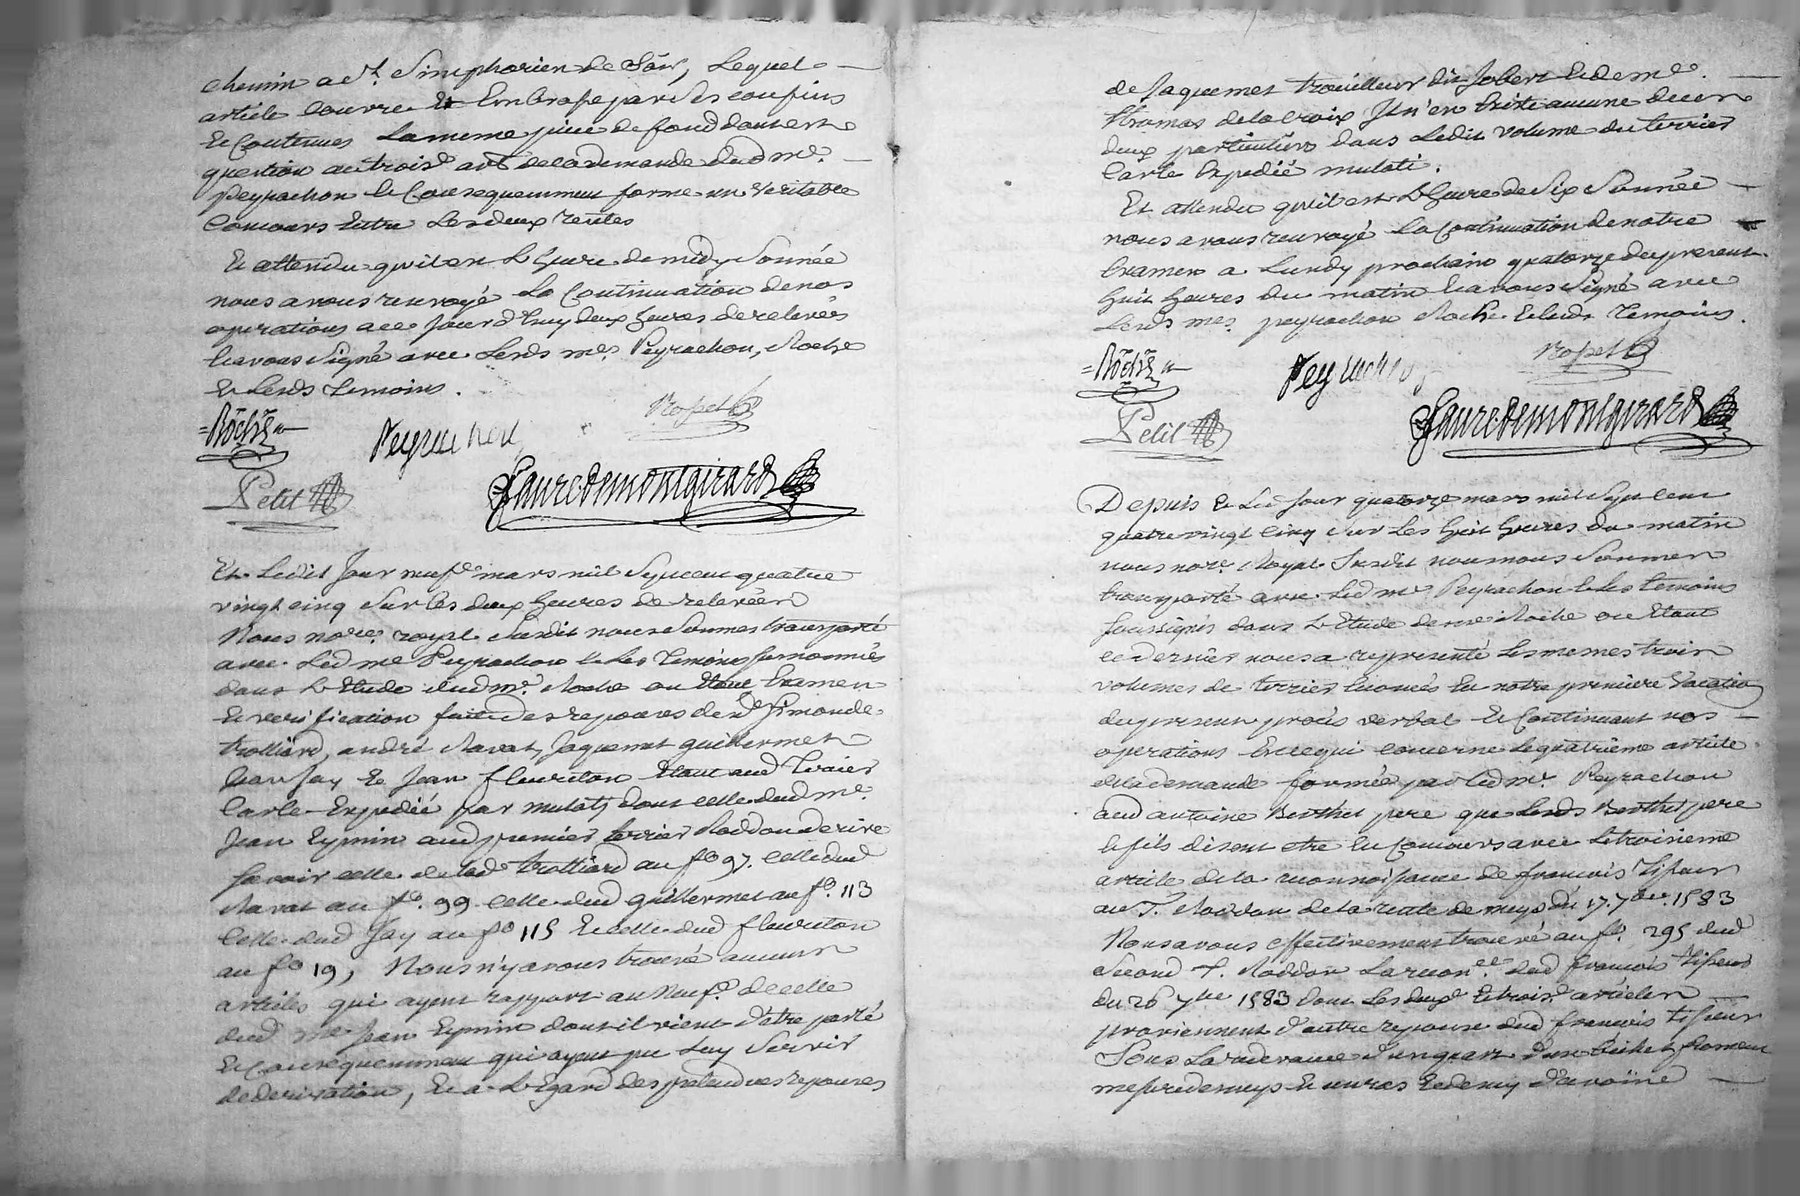 chemin a St. Simphorien de Lay, Lequel
article Couvre Et Embrasse par ses confins
Et Contenues La meme piece de fond dont est
question au trois.e art. de la demande dud me.
Peyrachon Et Consequemment forme un veritable
Concours Entre Les deux rentes
Et attendu qu'il est L'heure de midy Sonnée
nous avons renvoyé La Continuation de nos
operations a ce Jourd'huy deux heures de relevée
Et avons Signé avec Lesds mes Peyrachon, Roche
Et Lesds Temoins.
Roche
Peyrachon
Ropet
Petit
Faure de montgirard
Et Ledit Jour neuf.e mars mil Sept cent quatre
vingt cinq Sur les deux heures de relevée
Nous no.re royal Susdit nous sommes transporté
avec Led me Peyrachon & Les Temoins susnommés
dans L'Etude dud me. Roche ou Etant Examen
Et verification faite des reponses de
trolliard, andré Ravat, Jaquemet guillermet
Jean Jay Et Jean fleureton Etant aud Terrier
Carle Expedié par mulati, dont celle dud me.
Jean Eymin aud premier terrier Roddon derive
Savoir celle de lad. trolliard au f.o 97. Celle dud
Ravat au f.o 99 celle dud guillermet au f.o 113
Celle dud Jay au f.o 115 Et celle dud fleureton
au f.o 19, Nous n'y avons trouvé aucuns
articles qui ayent rapport au Neuf.e de celle
dud me Jean Eymin dont il vient d'etre parlé
Et Consequemment qui ayent pu Luy Servir
de derivation, Et a L'Egard des pretendues reponses
de Jaquemet trouilleur dit Jobert Et de me.
thomas de la croix Il n'en Existe aucune de ces
deux particuliers dans Ledit volume du terrier
Carle Expedié mulati.
Et attendu qu'il est L'heure de Six Sonnée
nous avons renvoyé La Continuation de notre
Examen a Lundy prochain quatorze du present
huit heures du matin Et avons Signé avec
Lesds mes. peyrachon Roche Et Lesds Temoins.
Roche
Peyrachon
Ropet
Petit
Faure de montgirard
Depuis Et Led Jour quatorze mars mil Sept cent
quatre vingt cinq Sur Les huit heures du matin
nous no.re Royal Susdit nous nous Sommes
transporté avec Led me Peyrachon & Les temoins
Soussignés dans L'Etude de me Roche ou Etant
ce dernier nous a representé Les memes trois
volumes de terrier Enoncés En notre premiere vacation
du present procés verbal Et Continuant nos
operations En ce qui concerne Le quatrieme article
de la demande formée par Led me. Peyrachon
aud antoine Berthet pere que Lesds Berthet pere
& fils disent etre En Concours avec Le troisieme
article de la reconnoissance de francois Tisseur
au T. Roddon de la rente de meys du 17. 7bre. 1583
Nous avons effectivement trouvé au f.o 295 dud
Second T. Roddon La recon.ce dud francois Tisseur
du 26 7bre 1583 dont Les deux.e Et trois.e articles
proviennent d'autre reponse dud francois tisseur
Sous La redevance d'un quart d'un bichet froment
mesure de meys Et un ras Et demy d'avoine